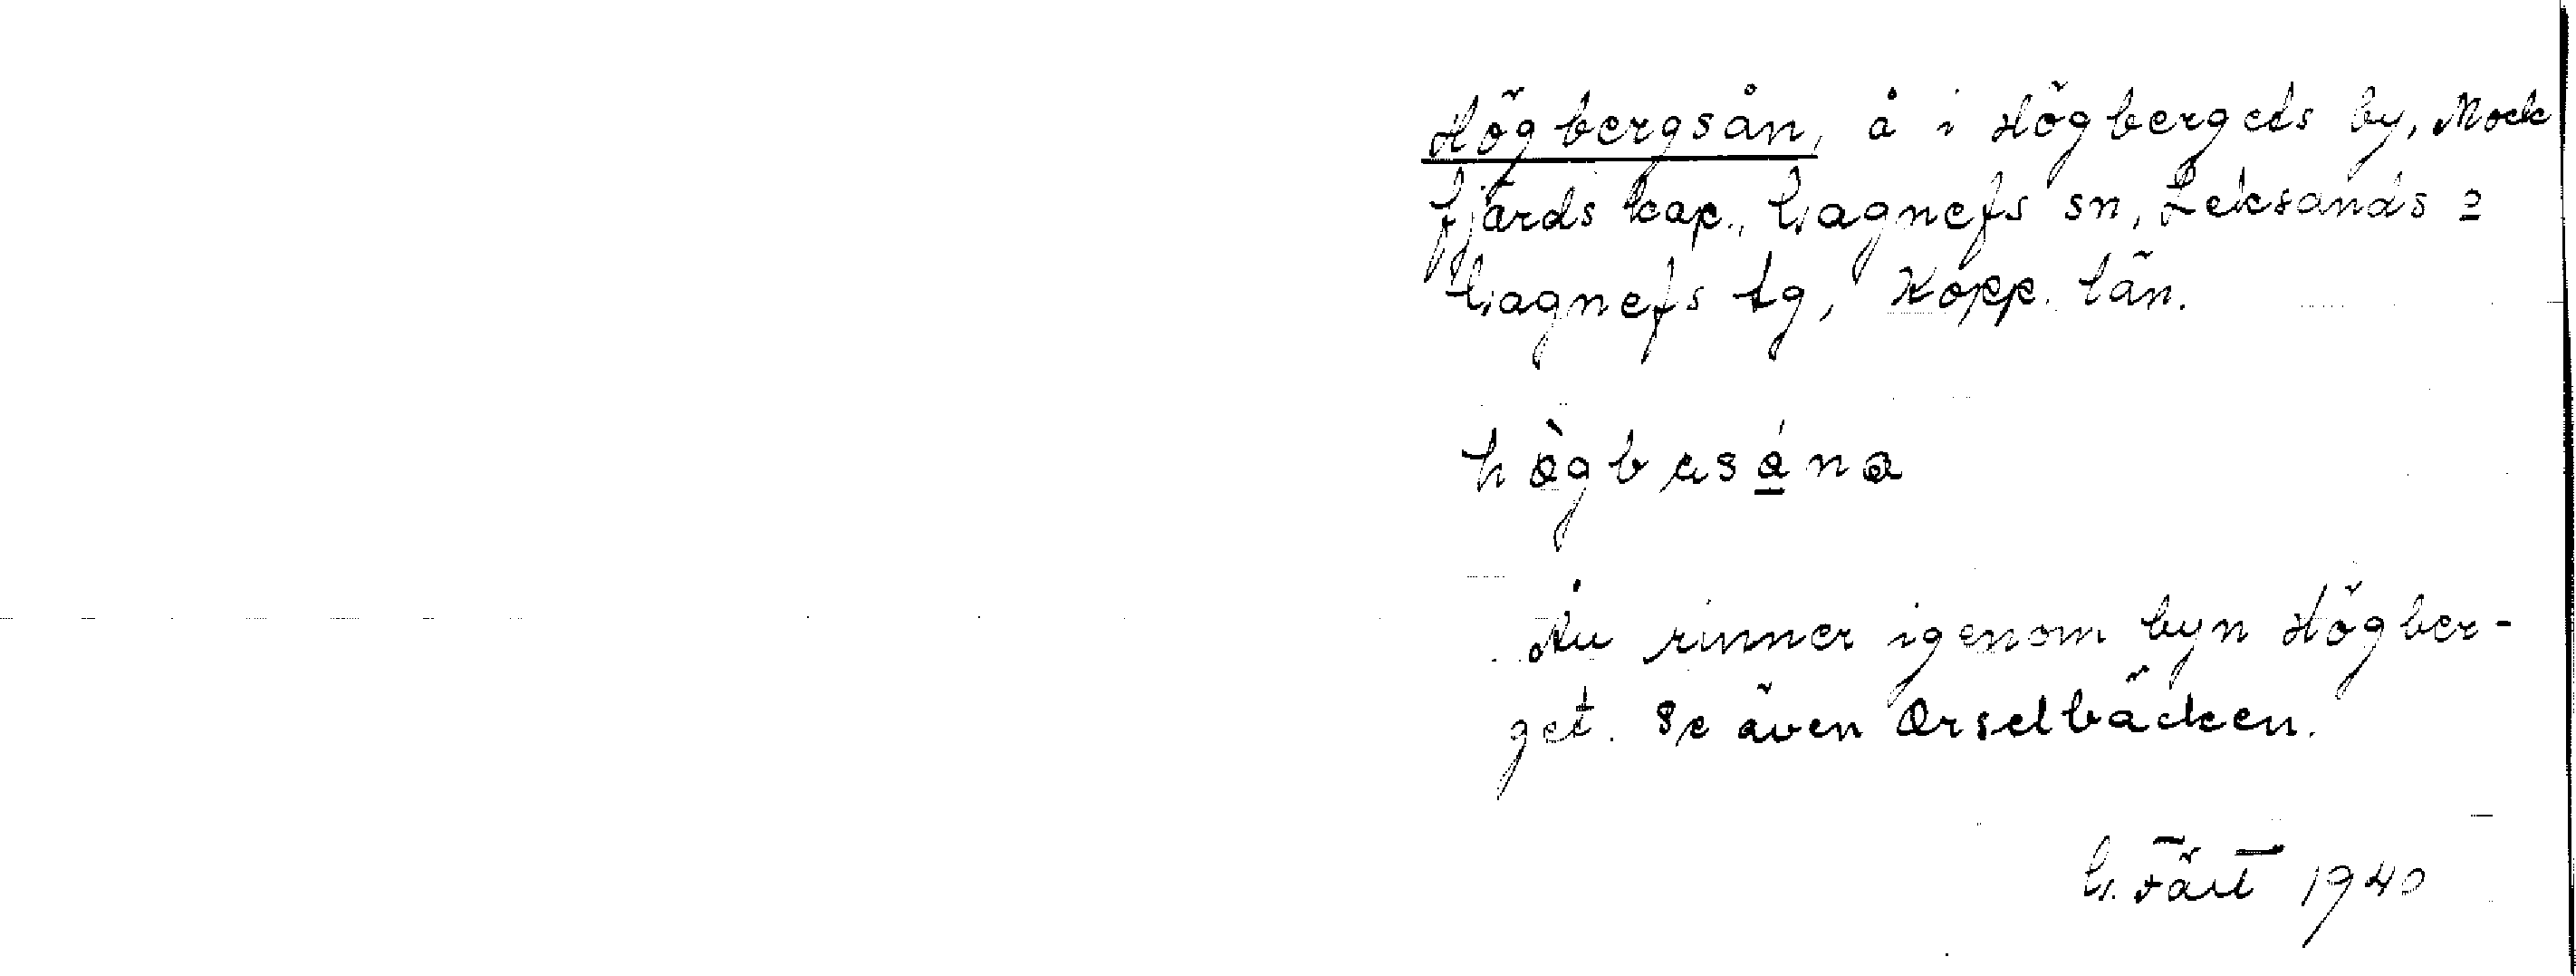 Högbergsån, å i Högbergets by, Mock
fjärds kap., Gagnefs sn, Leksands =
Gagnefs tg, Kopp. län.
Ån rinner igenom byn Högber-
get. Se även Orselbäcken.
G. 1940